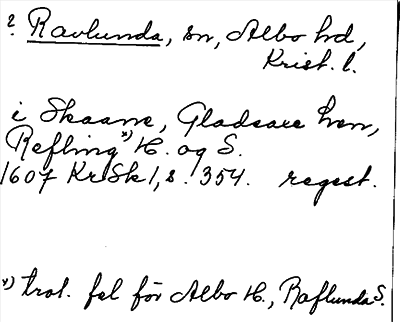 ? Ravlunda, sn, Albo hd,
Krist. l.
i Skaane, Gladsaxe len,
Refling x) H. og S.
1607 KrSk 1, s. 354. regest.
x) trol. fel för Albo H., Raflunda S.